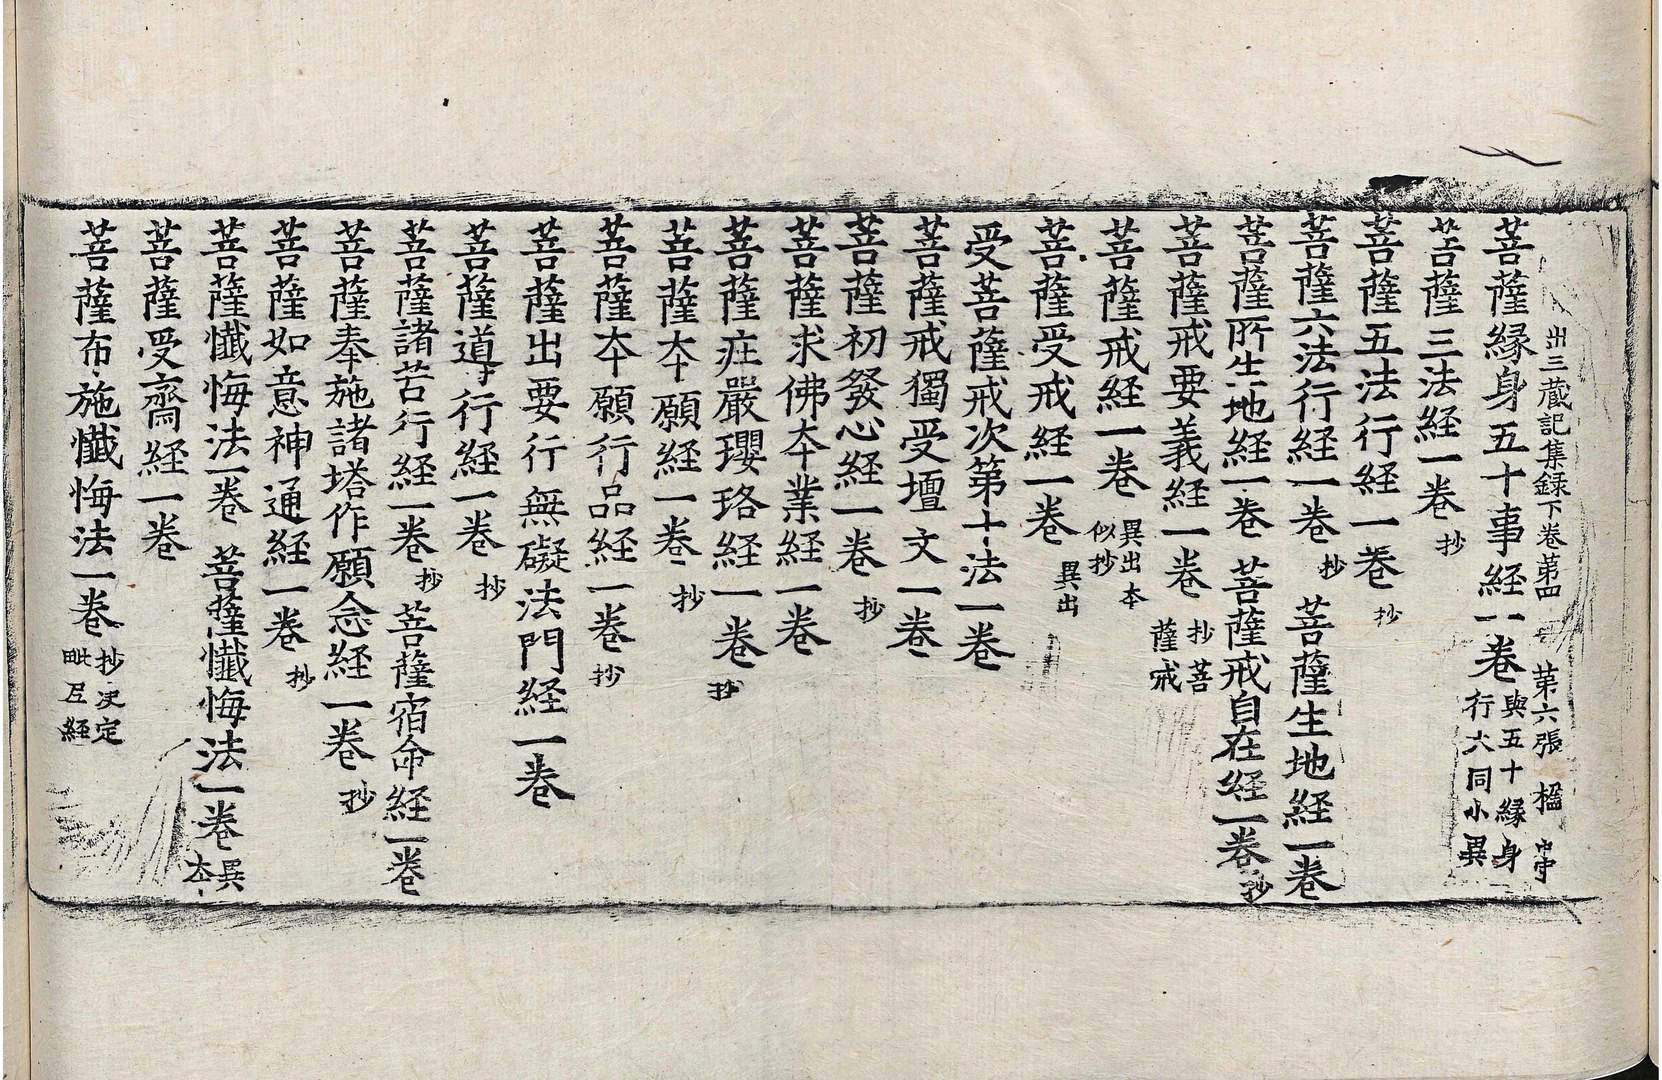 出三蔵記集録下卷第四 第六張 楹
菩薩縁身五十事経一卷 與五十縁身行大同小異
菩薩三法経一卷 抄
菩薩五法行経一卷 抄
菩薩六法行経一卷 抄 菩薩生地経一卷
菩薩所生地経一卷 菩薩戒自在経一卷 抄
菩薩戒要義経一卷 抄菩薩戒
菩薩戒経一卷 異出本似抄
菩薩受戒経一卷 異出
受菩薩戒次第十法一卷
菩薩戒獨受壇文一卷
菩薩初發心経一卷 抄
菩薩求佛本業経一卷
菩薩莊嚴瓔珞経一卷 抄
菩薩本願経一卷 抄
菩薩本願行品経一卷 抄
菩薩出要行無礙法門経一卷
菩薩道行経一卷 抄
菩薩諸苦行経一卷 抄 菩薩宿命経一卷
菩薩奉施諸塔作願念経一卷 抄
菩薩如意神通経一卷 抄
菩薩懺悔法一卷 菩薩懺悔法一卷 異本
菩薩受齋経一卷
菩薩布施懺悔法一卷 抄决定毗尼経